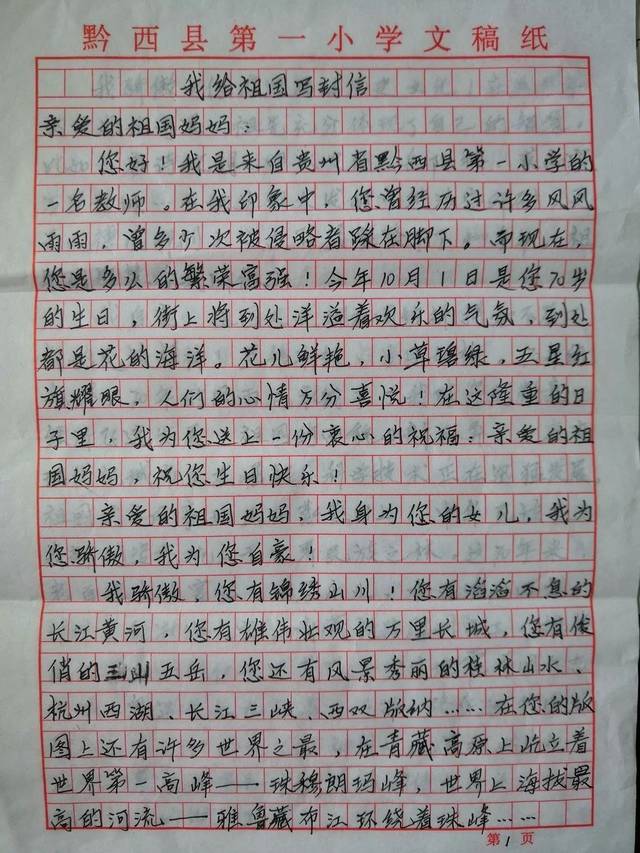 黔西县第一小学文稿纸
我给祖国写封信
亲爱的祖国妈妈:
您好!我是来自贵州省黔西县第一小学的
一名教师。在我印象中,您曾经历过许多风风
雨雨,曾多少次被侵略者踩在脚下。而现在,
您是多么的繁荣富强!今年10月1日是您70岁
的生日,街上将到处洋溢着欢乐的气氛,到处
都是花的海洋。花儿鲜艳,小草碧绿,五星红
旗耀眼,人们的心情万分喜悦!在这隆重的日
子里,我为您送上一份衷心的祝福:亲爱的祖
国妈妈,祝您生日快乐!
亲爱的祖国妈妈,我身为您的女儿,我为
您骄傲,我为您自豪!
我骄傲,您有锦绣山川!您有滔滔不息的
长江黄河,您有雄伟壮观的万里长城,您有俊
俏的三山五岳,您还有风景秀丽的桂林山水、
杭州西湖、长江三峡、西双版纳……在您的版
图上还有许多世界之最,在青藏高原上屹立着
世界第一高峰——珠穆朗玛峰,世界上海拔最
高的河流——雅鲁藏布江环绕着珠峰……
第1页